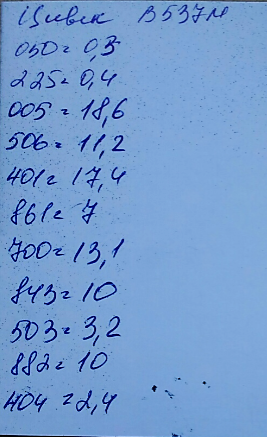 Цивек В537м
050 = 0,3
225 = 0,4
005 = 18,6
506 = 11,2
401 = 17,4
861 = 7
700 = 13,1
843 = 10
503 = 3,2
882 = 10
404 = 2,4